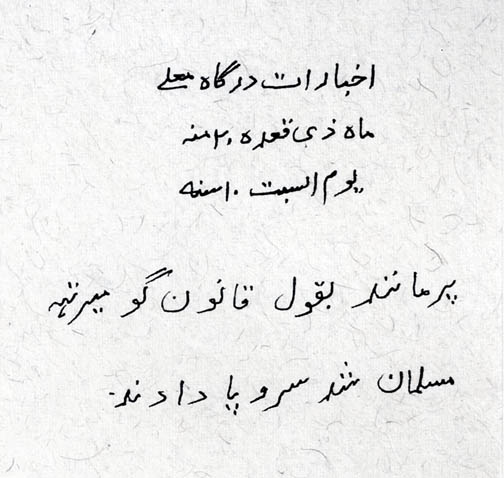 اخبارات درگاه معلے
ماه ذی قعده ۲۰ سنه
یوم السبت ۱۰ سنه
پرمانند بقول قانون گو میرتهہ
مسلمان شد سروپا دادند